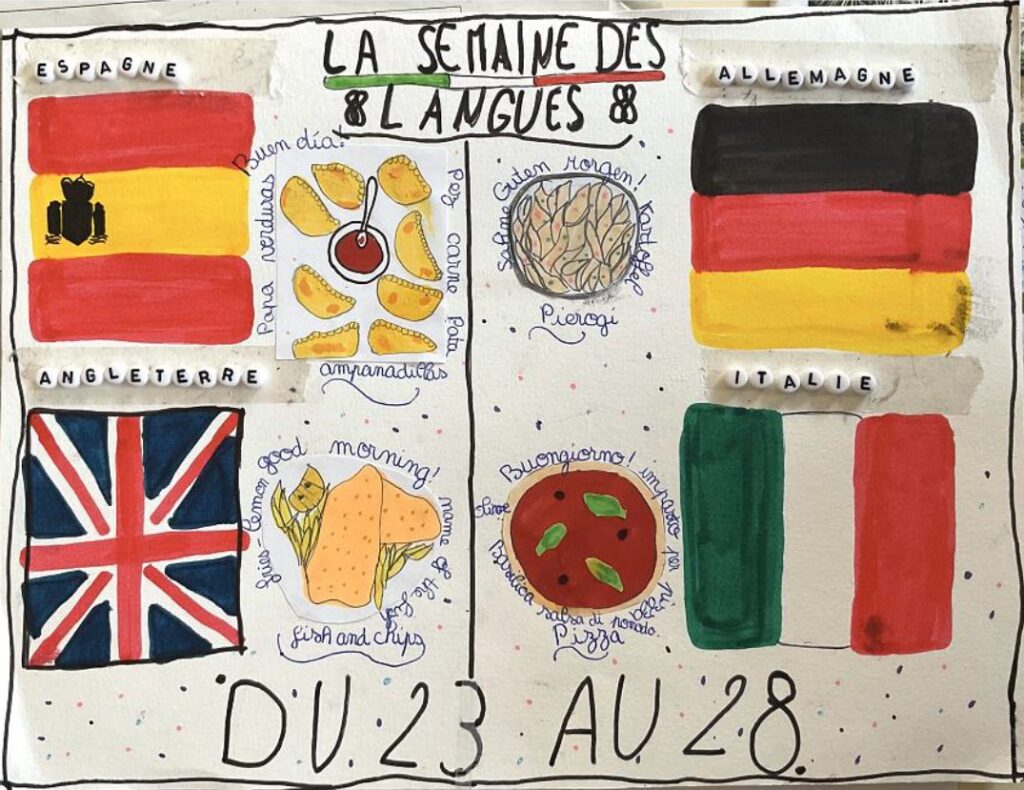 LA SEMAINE DES
LANGUES
ESPAGNE
Buen día!
Papa verduras
Peez carne Pata
ampanadillas
ALLEMAGNE
Guten rorgen!
Sahne
Kartoffel
Pierogi
ANGLETERRE
good morning!
fries - lemon
name of the foof
fish and chips
ITALIE
Buongiorno!
impasto per pizza
olive
Basilica salsa di pomodo.
Pizza
DU 23 AU 28.